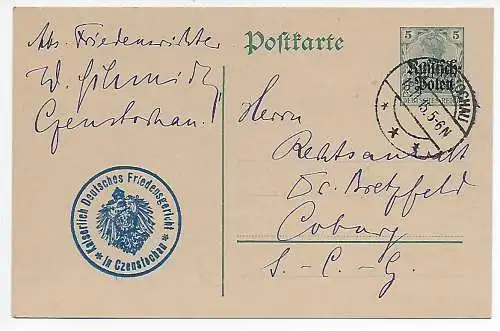 Abs. Friedensrichter
W. Schmidt
Czenstochau!
Postkarte
5 5
Russisch-
Polen
DEUTSCHES REICH
5-6N
Kaiserlich Deutsches Friedensgericht
* in Czenstochau *
Herrn
Rechtsanwalt
Dr. Bretzfeld
Coburg
S.-C.-G.